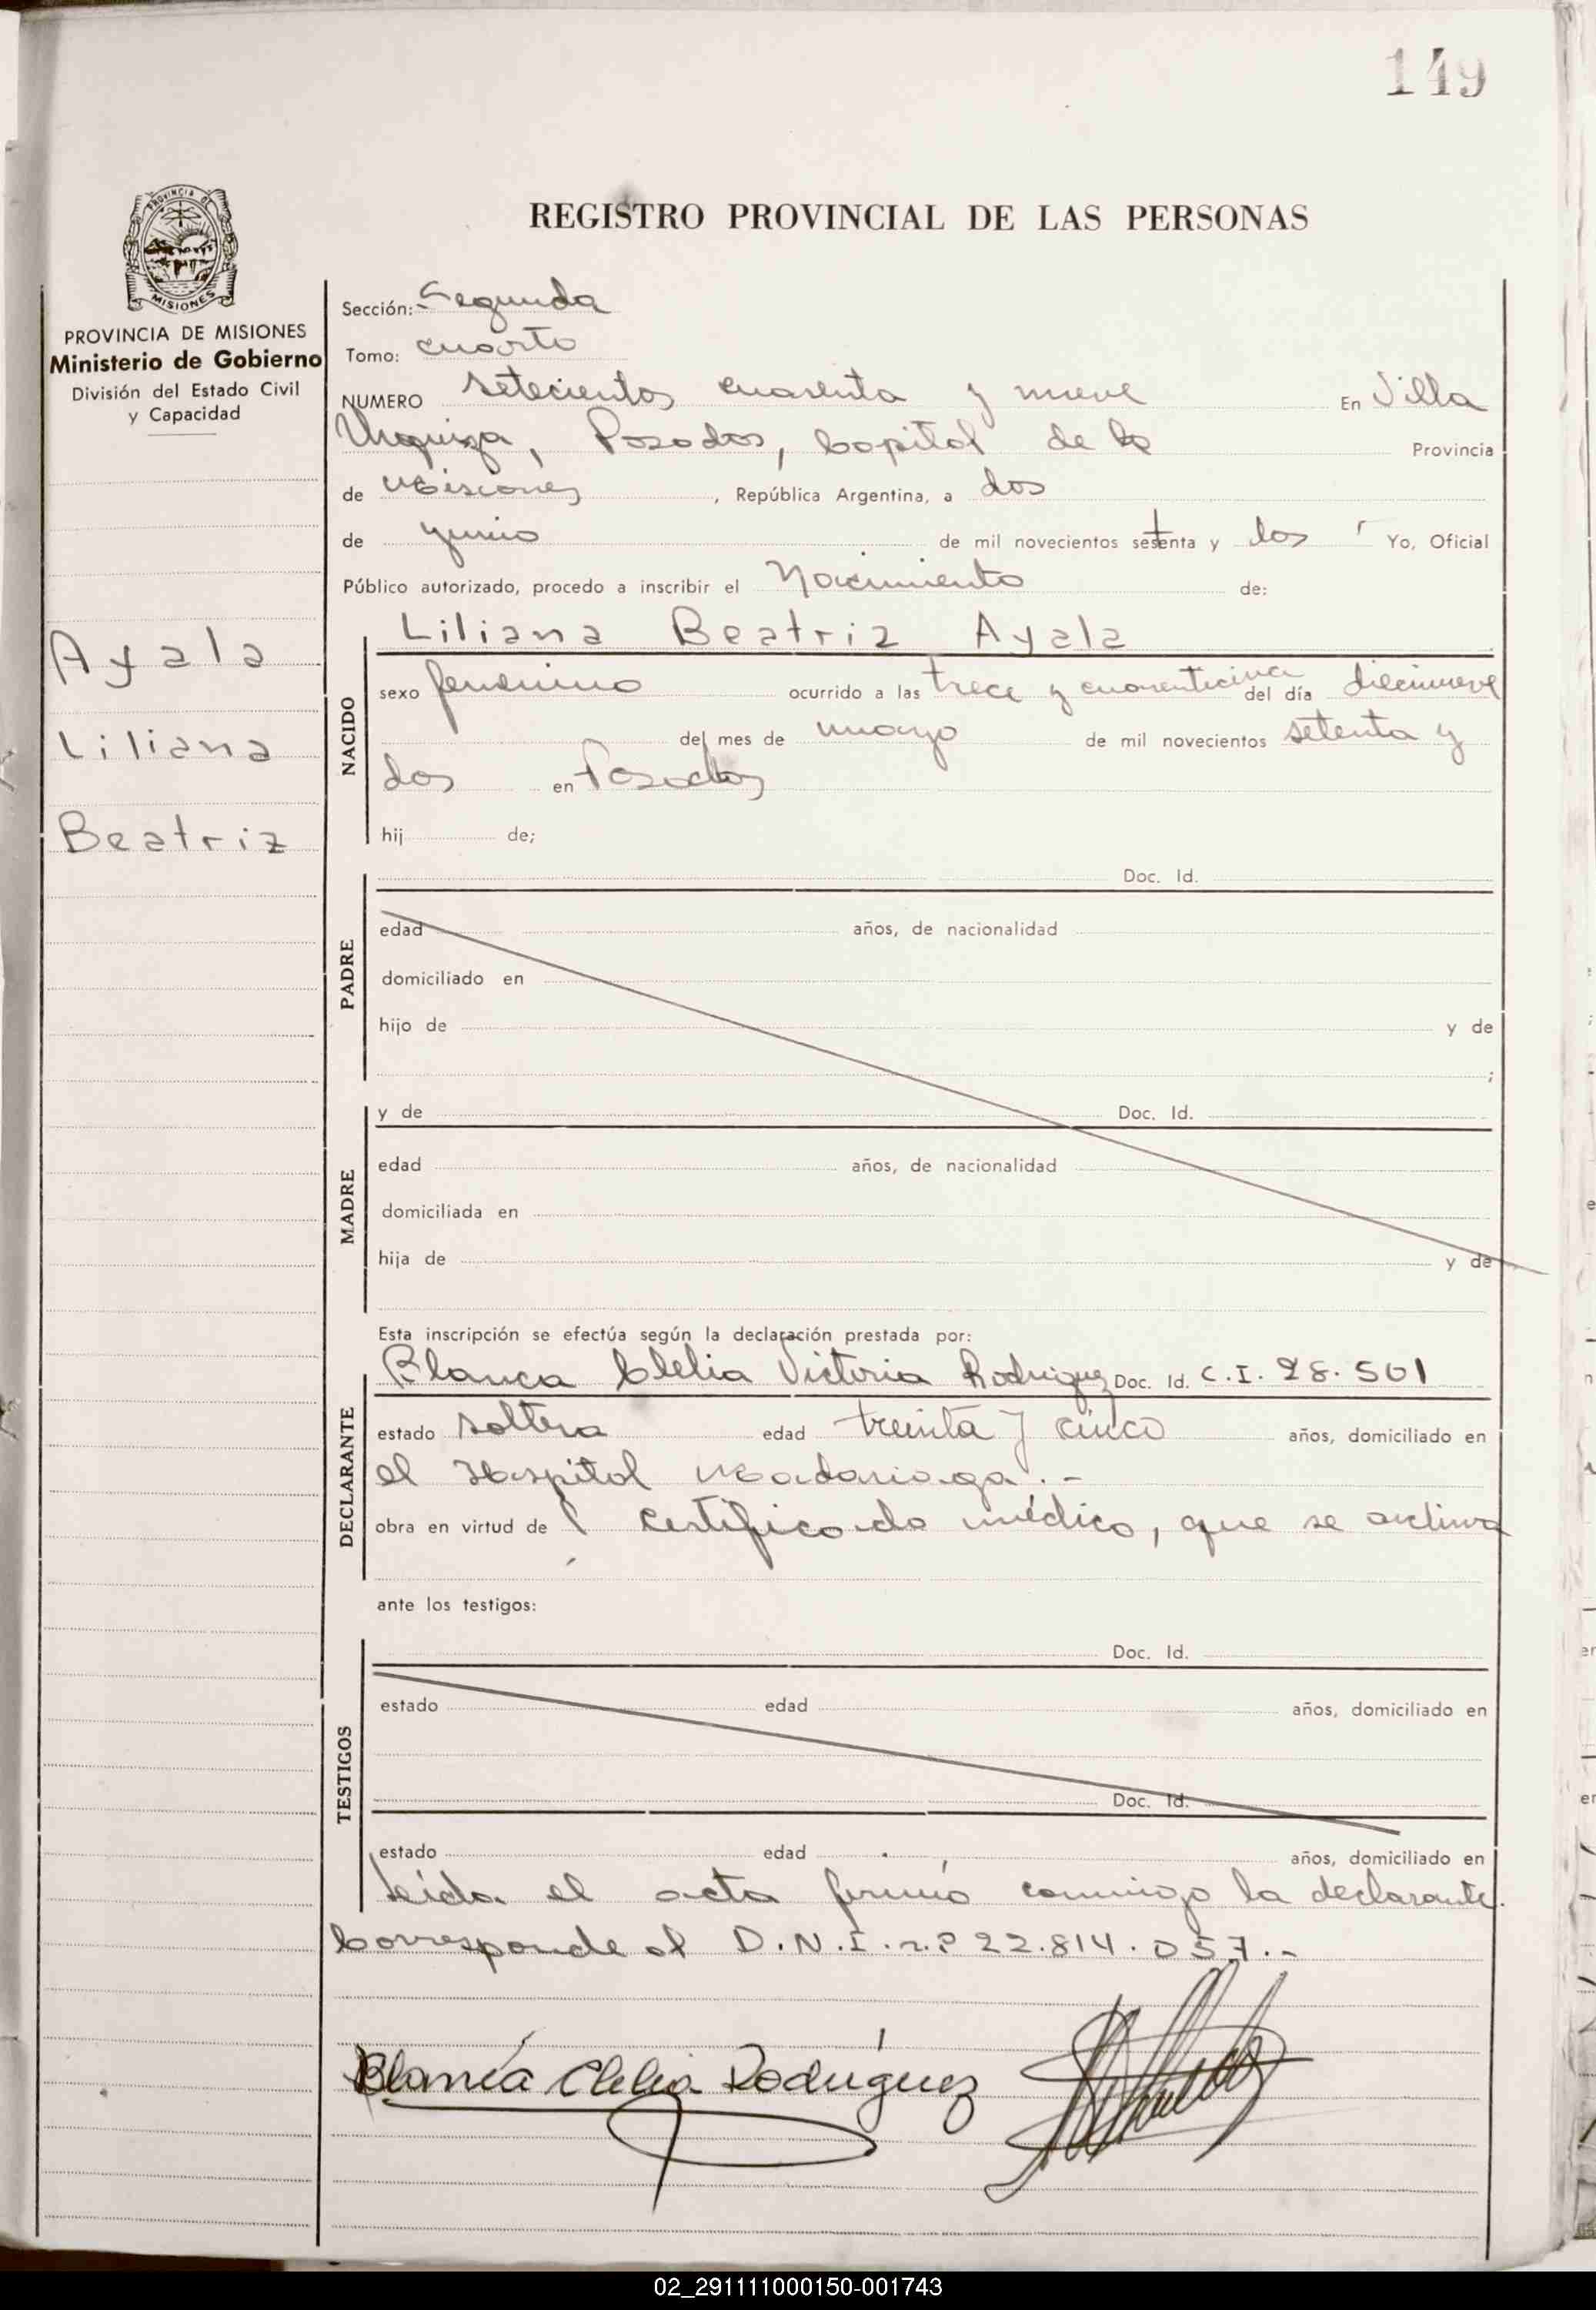 149
PROVINCIA DE
MISIONES
PROVINCIA DE MISIONES
Ministerio de Gobierno
División del Estado Civil
y Capacidad
Ayala
Liliana
Beatriz
REGISTRO PROVINCIAL DE LAS PERSONAS
Sección: Segunda
Tomo: cuarto
NUMERO setecientos cuarenta y nueve En Villa
Urquiza, Posadas, Capital de la Provincia
de Misiones, República Argentina, a dos
de junio de mil novecientos setenta y dos Yo, Oficial
Público autorizado, procedo a inscribir el Nacimiento de:
NACIDO
Liliana Beatriz Ayala
sexo femenino ocurrido a las trece y cuarenticinco del día diecinueve
del mes de mayo de mil novecientos setenta y
dos en Posadas
hij de;
PADRE
Doc. Id.
edad años, de nacionalidad
domiciliado en
hijo de y de
;
MADRE
y de Doc. Id.
edad años, de nacionalidad
domiciliada en
hija de y de
Esta inscripción se efectúa según la declaración prestada por:
DECLARANTE
Blanca Clelia Victoria Rodriguez Doc. Id. C.I. 28.501
estado soltera edad treinta y cinco años, domiciliado en
el Hospital Madariaga.-
obra en virtud de l certificado médico, que se archiva
ante los testigos:
TESTIGOS
Doc. Id.
estado edad años, domiciliado en
Doc. Id.
estado edad años, domiciliado en
Leída el acta firmó conmigo la declarante.
Corresponde al D.N.I. n.º 22.814.057.-
Blanca Clelia Rodríguez
02_291111000150-001743